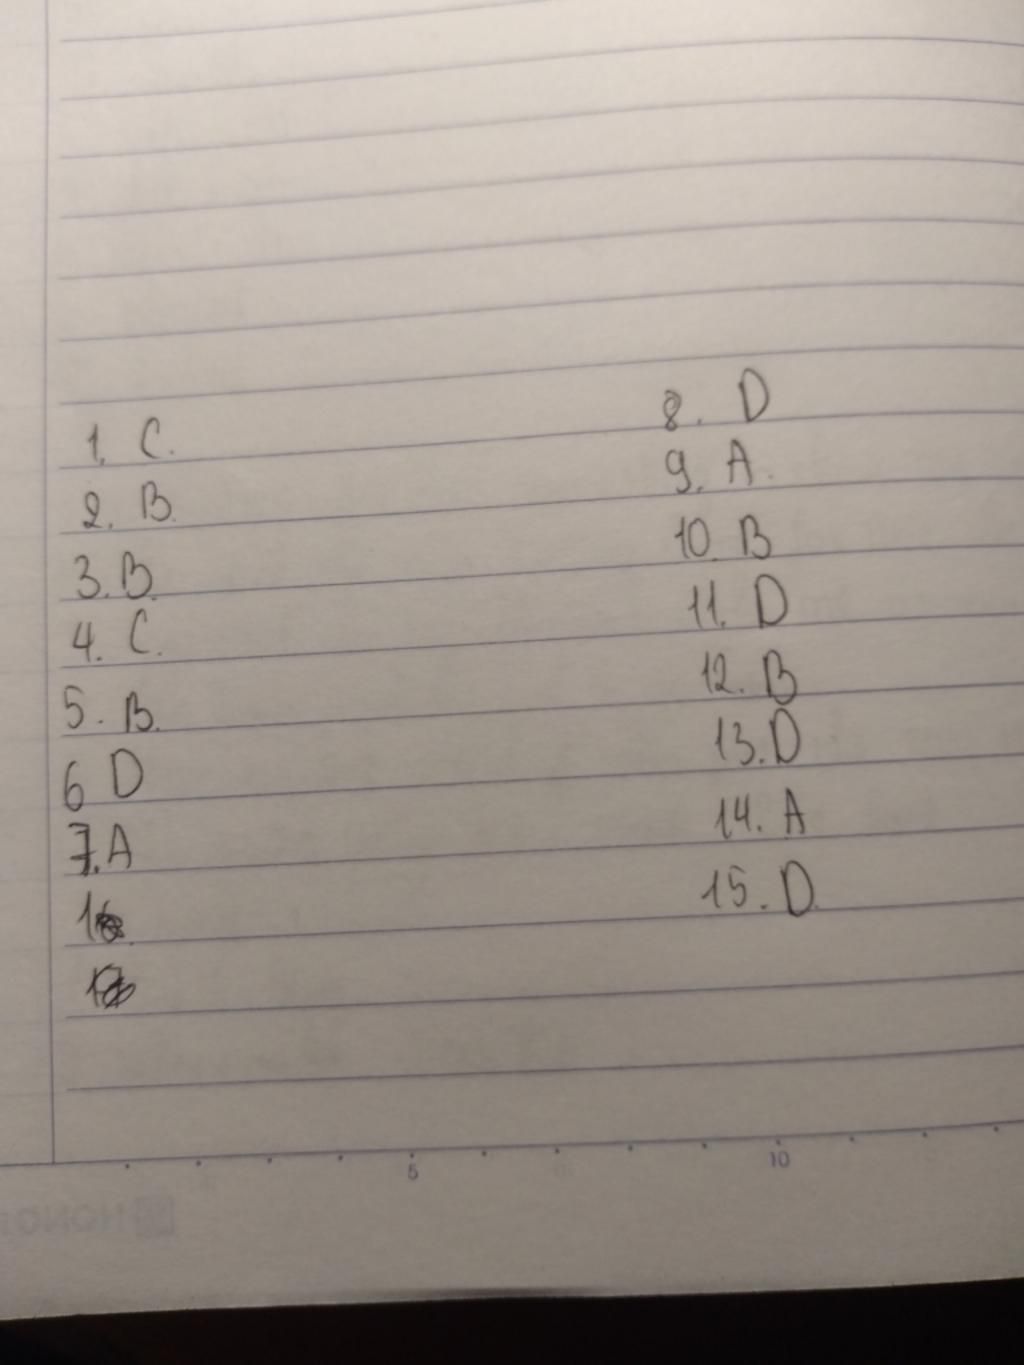 1. C.
2. B.
3. B.
4. C.
5. B.
6 D
7. A
8. D
9. A.
10. B
11. D
12. B
13. D
14. A
15. D.
5
10